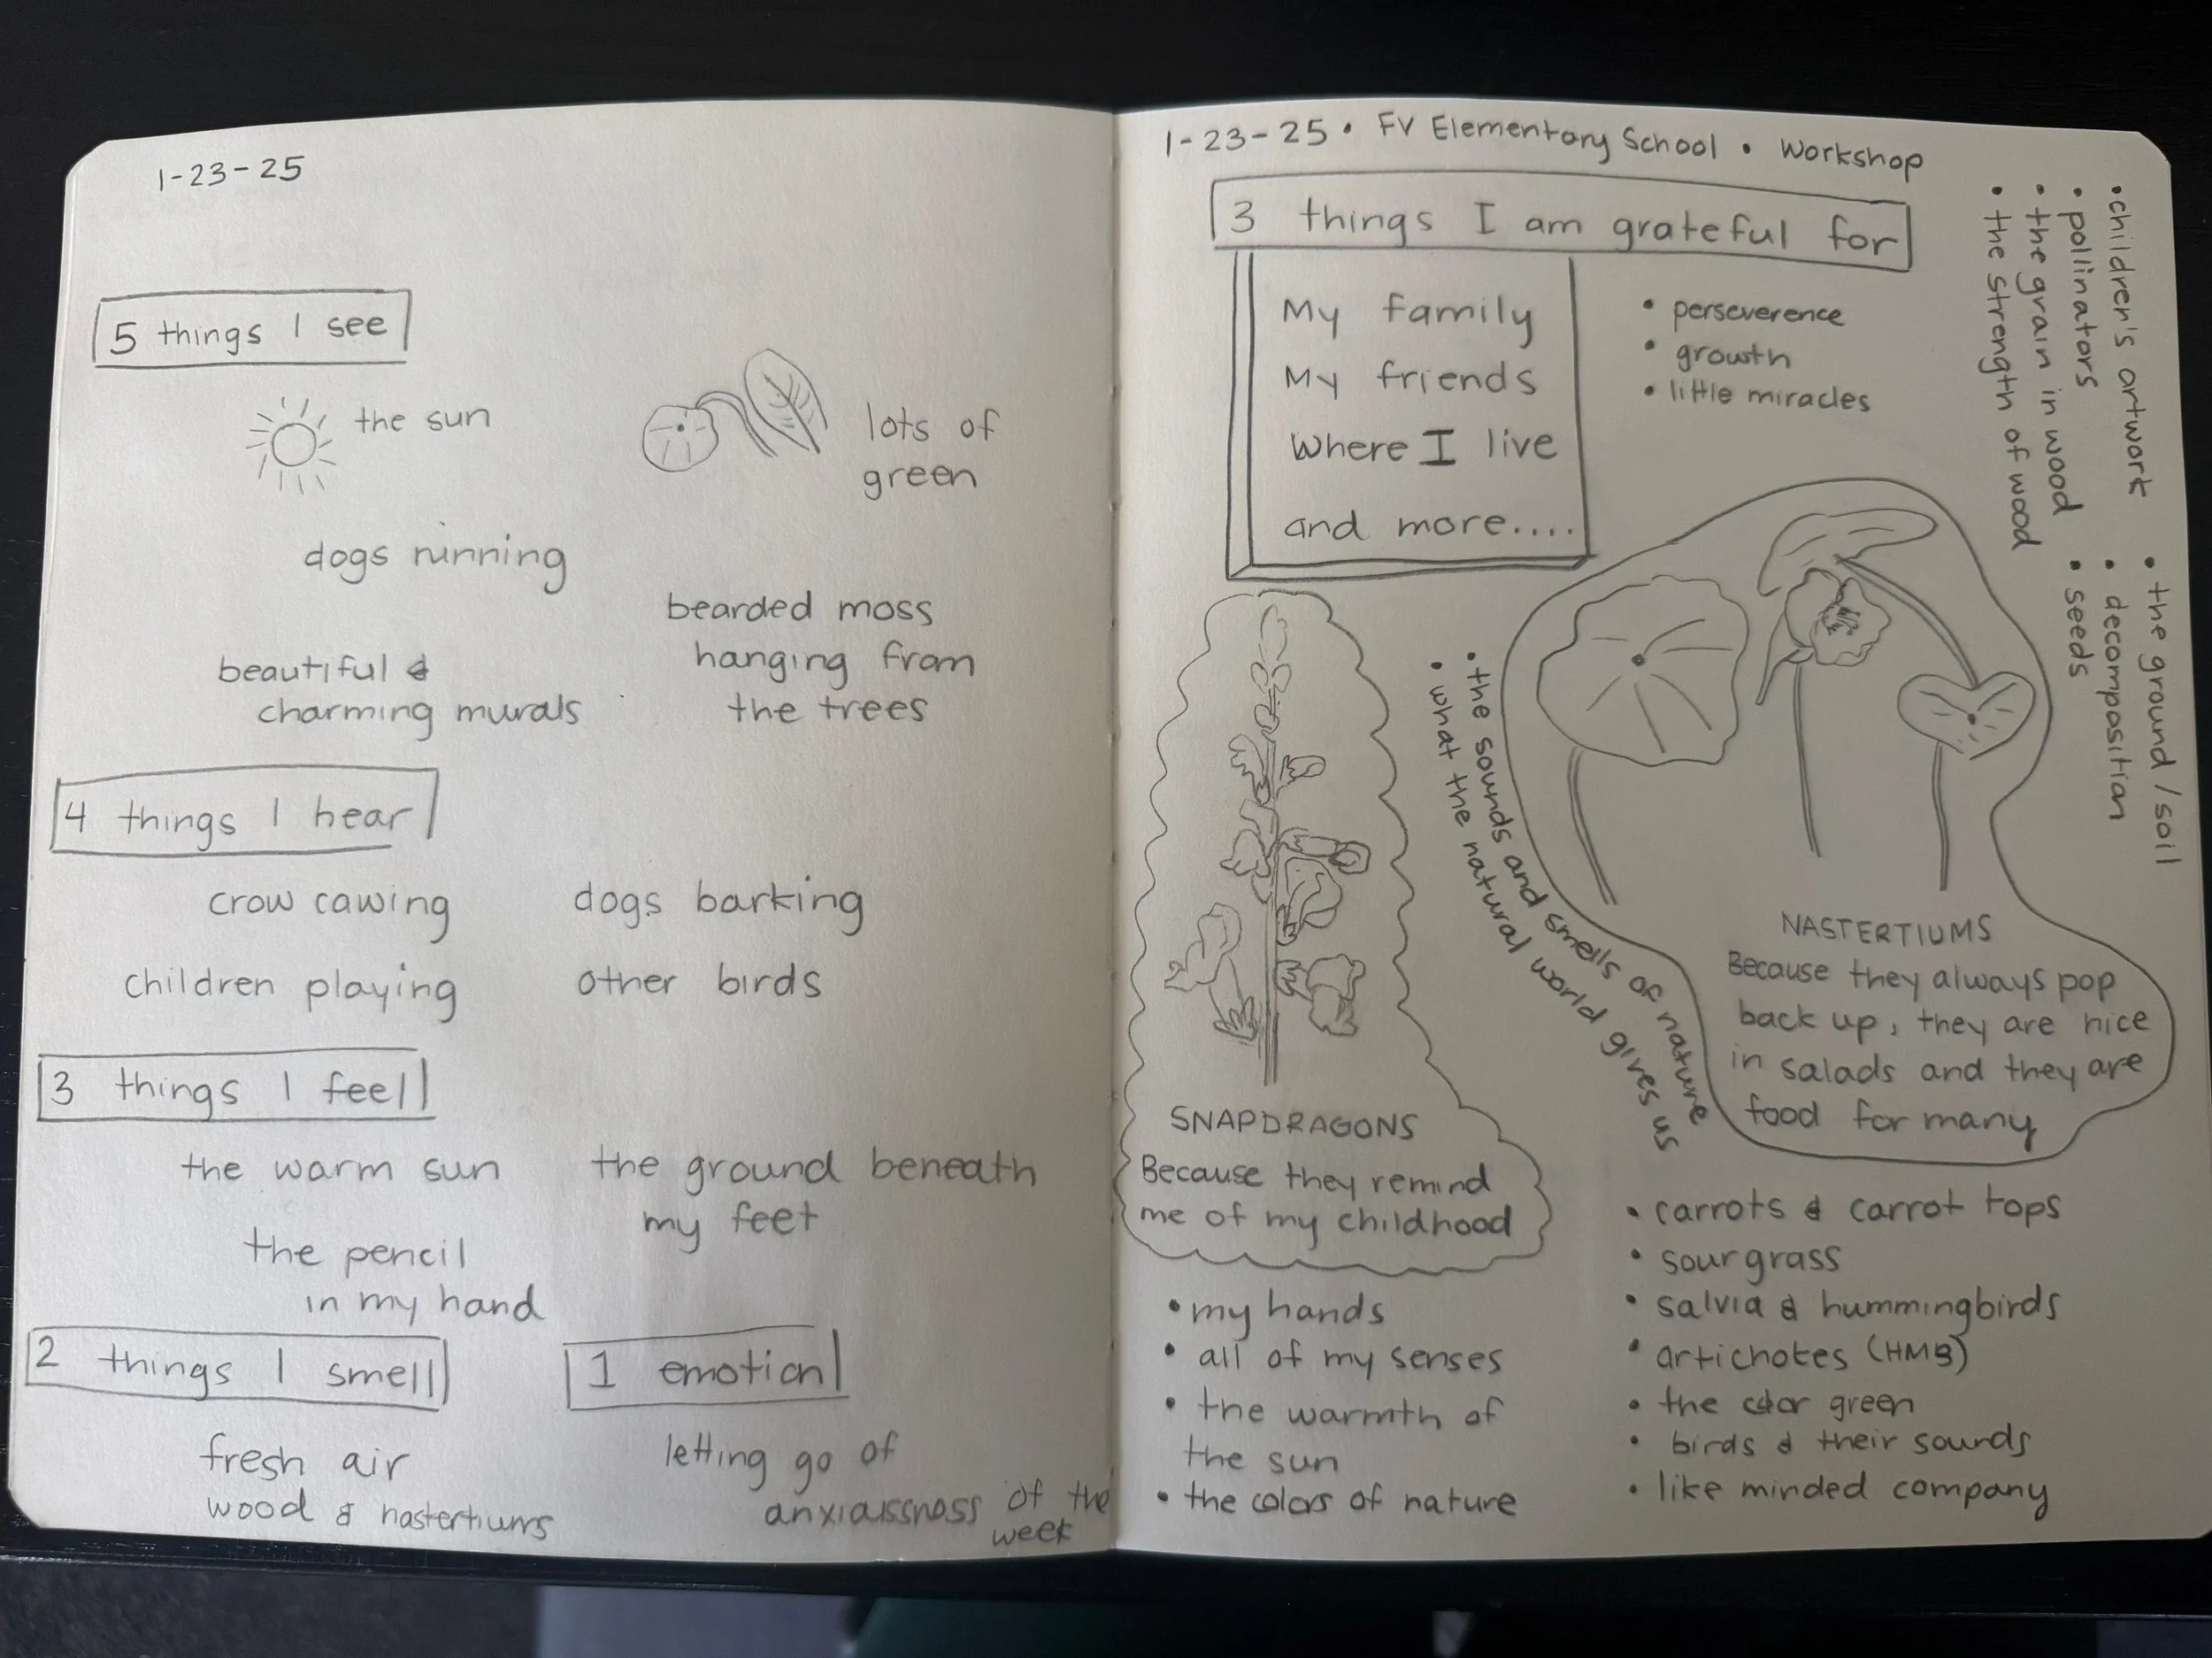 1-23-25
5 things I see
the sun
lots of
green
dogs running
bearded moss
hanging from
the trees
beautiful &
charming murals
4 things I hear
crow cawing
dogs barking
children playing
other birds
3 things I feel
the warm sun
the ground beneath
my feet
the pencil
in my hand
2 things I smell
fresh air
wood & nastertiums
1 emotion
letting go of
anxiousness of the
week
1-23-25 • FV Elementary School • Workshop
3 things I am grateful for
My family
My friends
Where I live
and more....
• perseverence
• growth
• little miracles
• children's artwork
• pollinators
• the grain in wood
• the strength of wood
• the ground/soil
• decomposition
• seeds
• the sounds and smells of nature
• what the natural world gives us
NASTERTIUMS
Because they always pop
back up, they are nice
in salads and they are
food for many
SNAPDRAGONS
Because they remind
me of my childhood
• my hands
• all of my senses
• the warmth of
the sun
• the colors of nature
• carrots & carrot tops
• sourgrass
• salvia & hummingbirds
• artichokes (HMB)
• the color green
• birds & their sounds
• like minded company